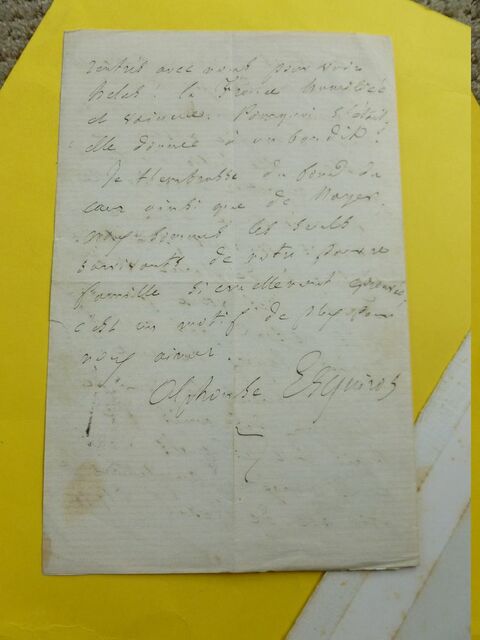 rentré avec nous pour voir
hélas! la France humiliée
et vaincue. Pourquoi s'était
elle donnée à un bandit!
Je t'embrasse du fond du
cœur ainsi que
nous sommes les seuls
survivants de notre pauvre
famille si cruellement éprouvée,
c'est un motif de plus pour
nous aimer.
Alphonse Esquiros